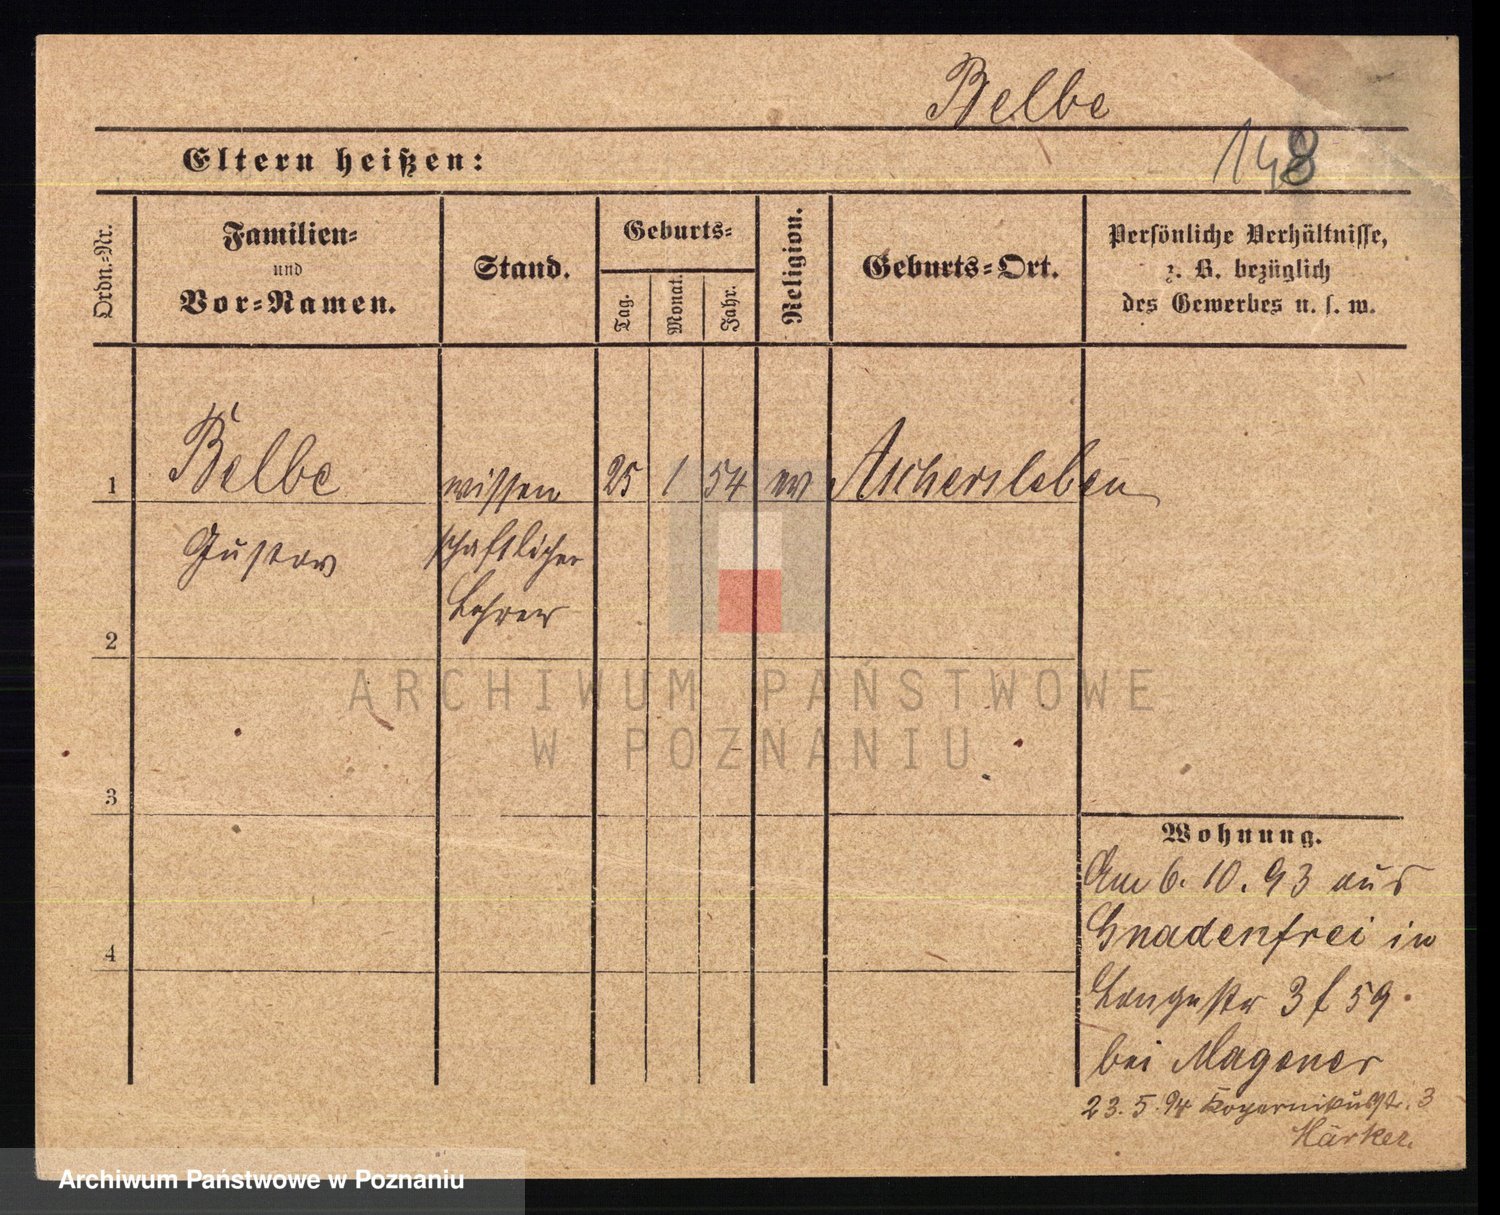 Belbe
Eltern heißen:
148
Ordn.-Nr.
Familien-
und
Vor-Namen.
Stand.
Geburts-
Tag.
Monat.
Jahr.
Religion.
Geburts-Ort.
Persönliche Verhältnisse,
z. B. bezüglich
des Gewerbes u. s. w.
1 Belbe wissen 25 1 54 ev Aschersleben
Gustav schaftlicher
Lehrer
2
3
4
Wohnung.
Am 6. 10. 93 aus
Gnadenfrei in
Langestr 3 f 59.
bei Magener
23. 5. 94 Kopernikusstr. 3
Härker.
ARCHIWUM PAŃSTWOWE
W POZNANIU
Archiwum Państwowe w Poznaniu